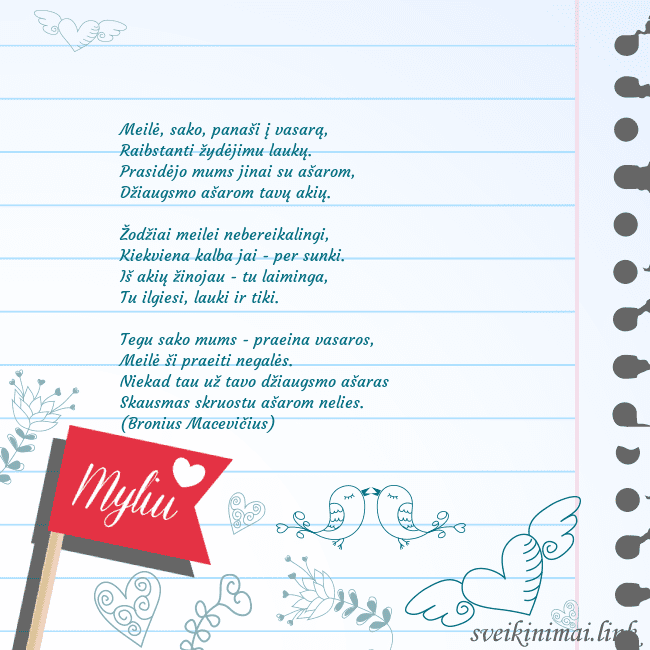 Meilė, sako, panaši į vasarą,
Raibstanti žydėjimu laukų.
Prasidėjo mums jinai su ašarom,
Džiaugsmo ašarom tavų akių.
Žodžiai meilei nebereikalingi,
Kiekviena kalba jai - per sunki.
Iš akių žinojau - tu laiminga,
Tu ilgiesi, lauki ir tiki.
Tegu sako mums - praeina vasaros,
Meilė ši praeiti negalės.
Niekad tau už tavo džiaugsmo ašaras
Skausmas skruostu ašarom nelies.
(Bronius Macevičius)
Myliu
sveikinimai.link